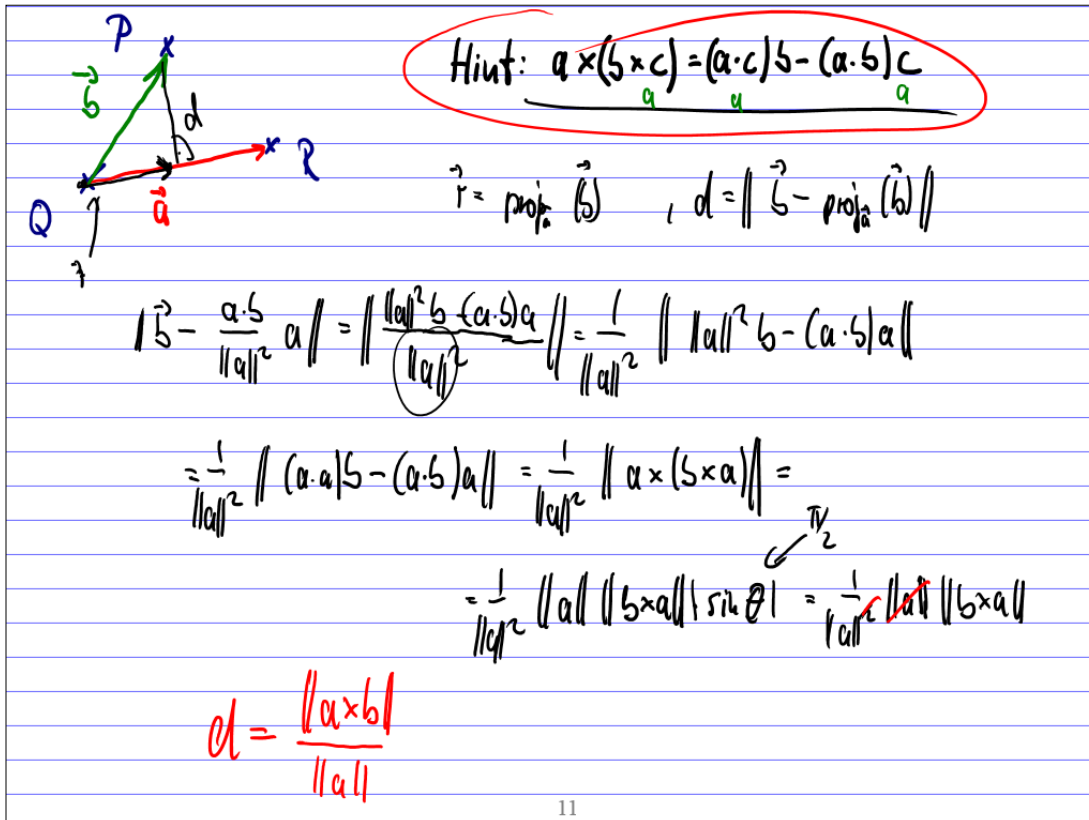 P
b⃗
d
R
Q
a⃗
r⃗
Hint: a×(b×c)=(a·c)b-(a·b)c
a a a
r⃗ = proj_a⃗ (b⃗) , d = ‖ b⃗ - proj_a⃗ (b⃗) ‖
‖ b⃗ - a·b/‖a‖² a ‖ = ‖ (‖a‖² b - (a·b)a)/‖a‖² ‖ = 1/‖a‖² ‖ ‖a‖² b - (a·b)a ‖
= 1/‖a‖² ‖ (a·a)b - (a·b)a ‖ = 1/‖a‖² ‖ a×(b×a) ‖ =
π/2
= 1/‖a‖² ‖a‖ ‖b×a‖ | sin θ | = 1/‖a‖² ‖a‖ ‖b×a‖
d = ‖a×b‖/‖a‖
11